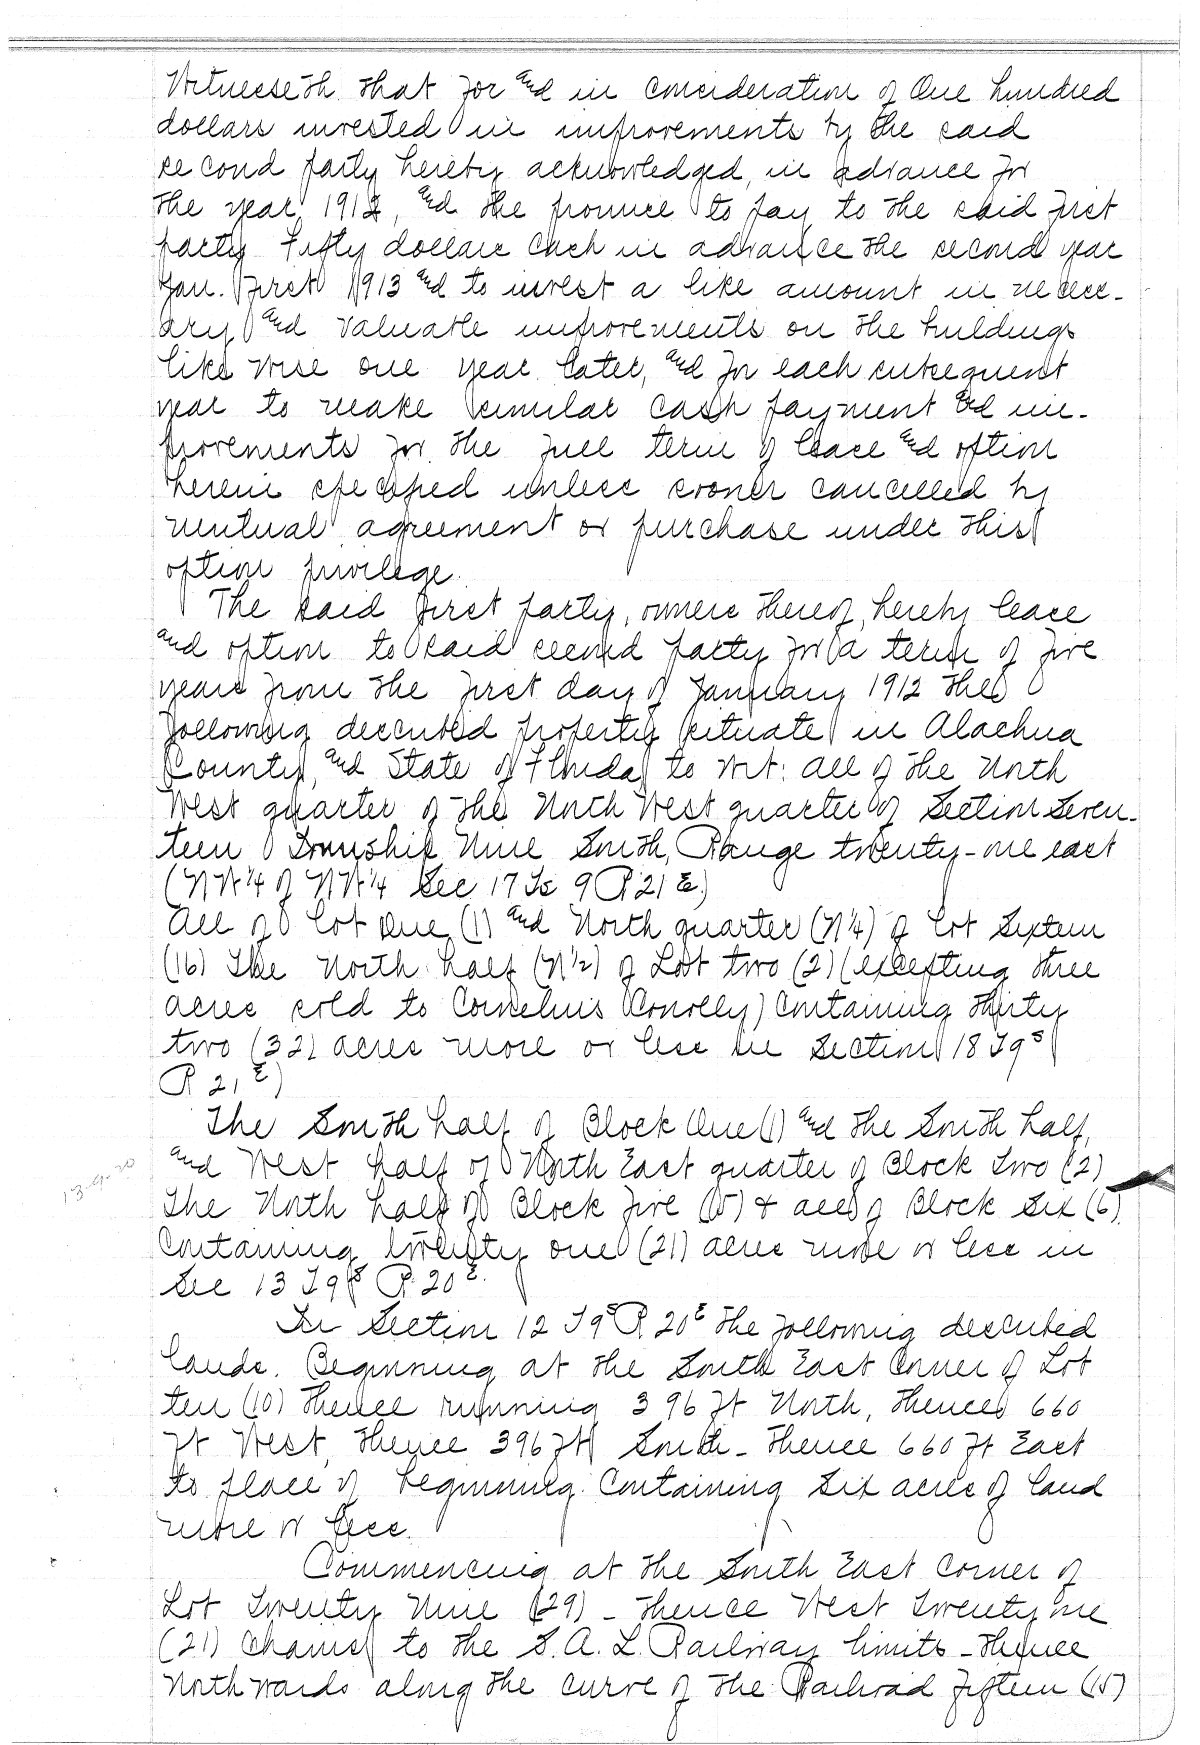 Witnesseth that for and in consideration of One hundred
dollars invested in improvements by the said
second party hereby acknowledged, in advance for
the year 1912, and the promise to pay to the said first
party Fifty dollars cash in advance the second year
Jan. First 1913 and to invest a like amount in necess-
ary and valuable improvements on the buildings
likewise one year later, and for each subsequent
year to make similar cash payment and im-
provements for the full term of lease and option
herein specified unless sooner cancelled by
mutual agreement or purchase under this
option privilege.
The said first party, owners thereof, hereby lease
and option to said second party for a term of five
years from the first day of January 1912 the
following described property situate in Alachua
County, and State of Florida to wit: all of the North
West quarter of the North West quarter of Section Seven-
teen Township Nine South, Range twenty-one east
(NW 1/4 of NW 1/4 Sec 17 Ts 9 R 21 E.)
All of Lot One (1) and North quarter (N 1/4) of Lot Sixteen
(16) The North half (N 1/2) of Lot two (2) (excepting three
acres sold to Cornelius Conolly) Containing thirty
two (32) acres more or less in Section 18 T9 S
R 21 E)
The South half of Block One (1) and the South half,
and West half of North East quarter of Block Two (2)
13-9-20
The North half of Block five (5) & all of Block Six (6)
Containing twenty one (21) acres more or less in
Sec 13 T9 S R 20 E.
In Section 12 T9 S R 20 E the following described
lands. Beginning at the South East Corner of Lot
ten (10) thence running 396 ft North, thence 660
ft West, thence 396 ft South - thence 660 ft East
to place of beginning. Containing Six acres of land
more or less.
Commencing at the South East Corner of
Lot Twenty Nine (29) - thence West Twenty one
(21) chains to the S. A. L. Railway limits - thence
Northwards along the curve of the Railroad fifteen (15)